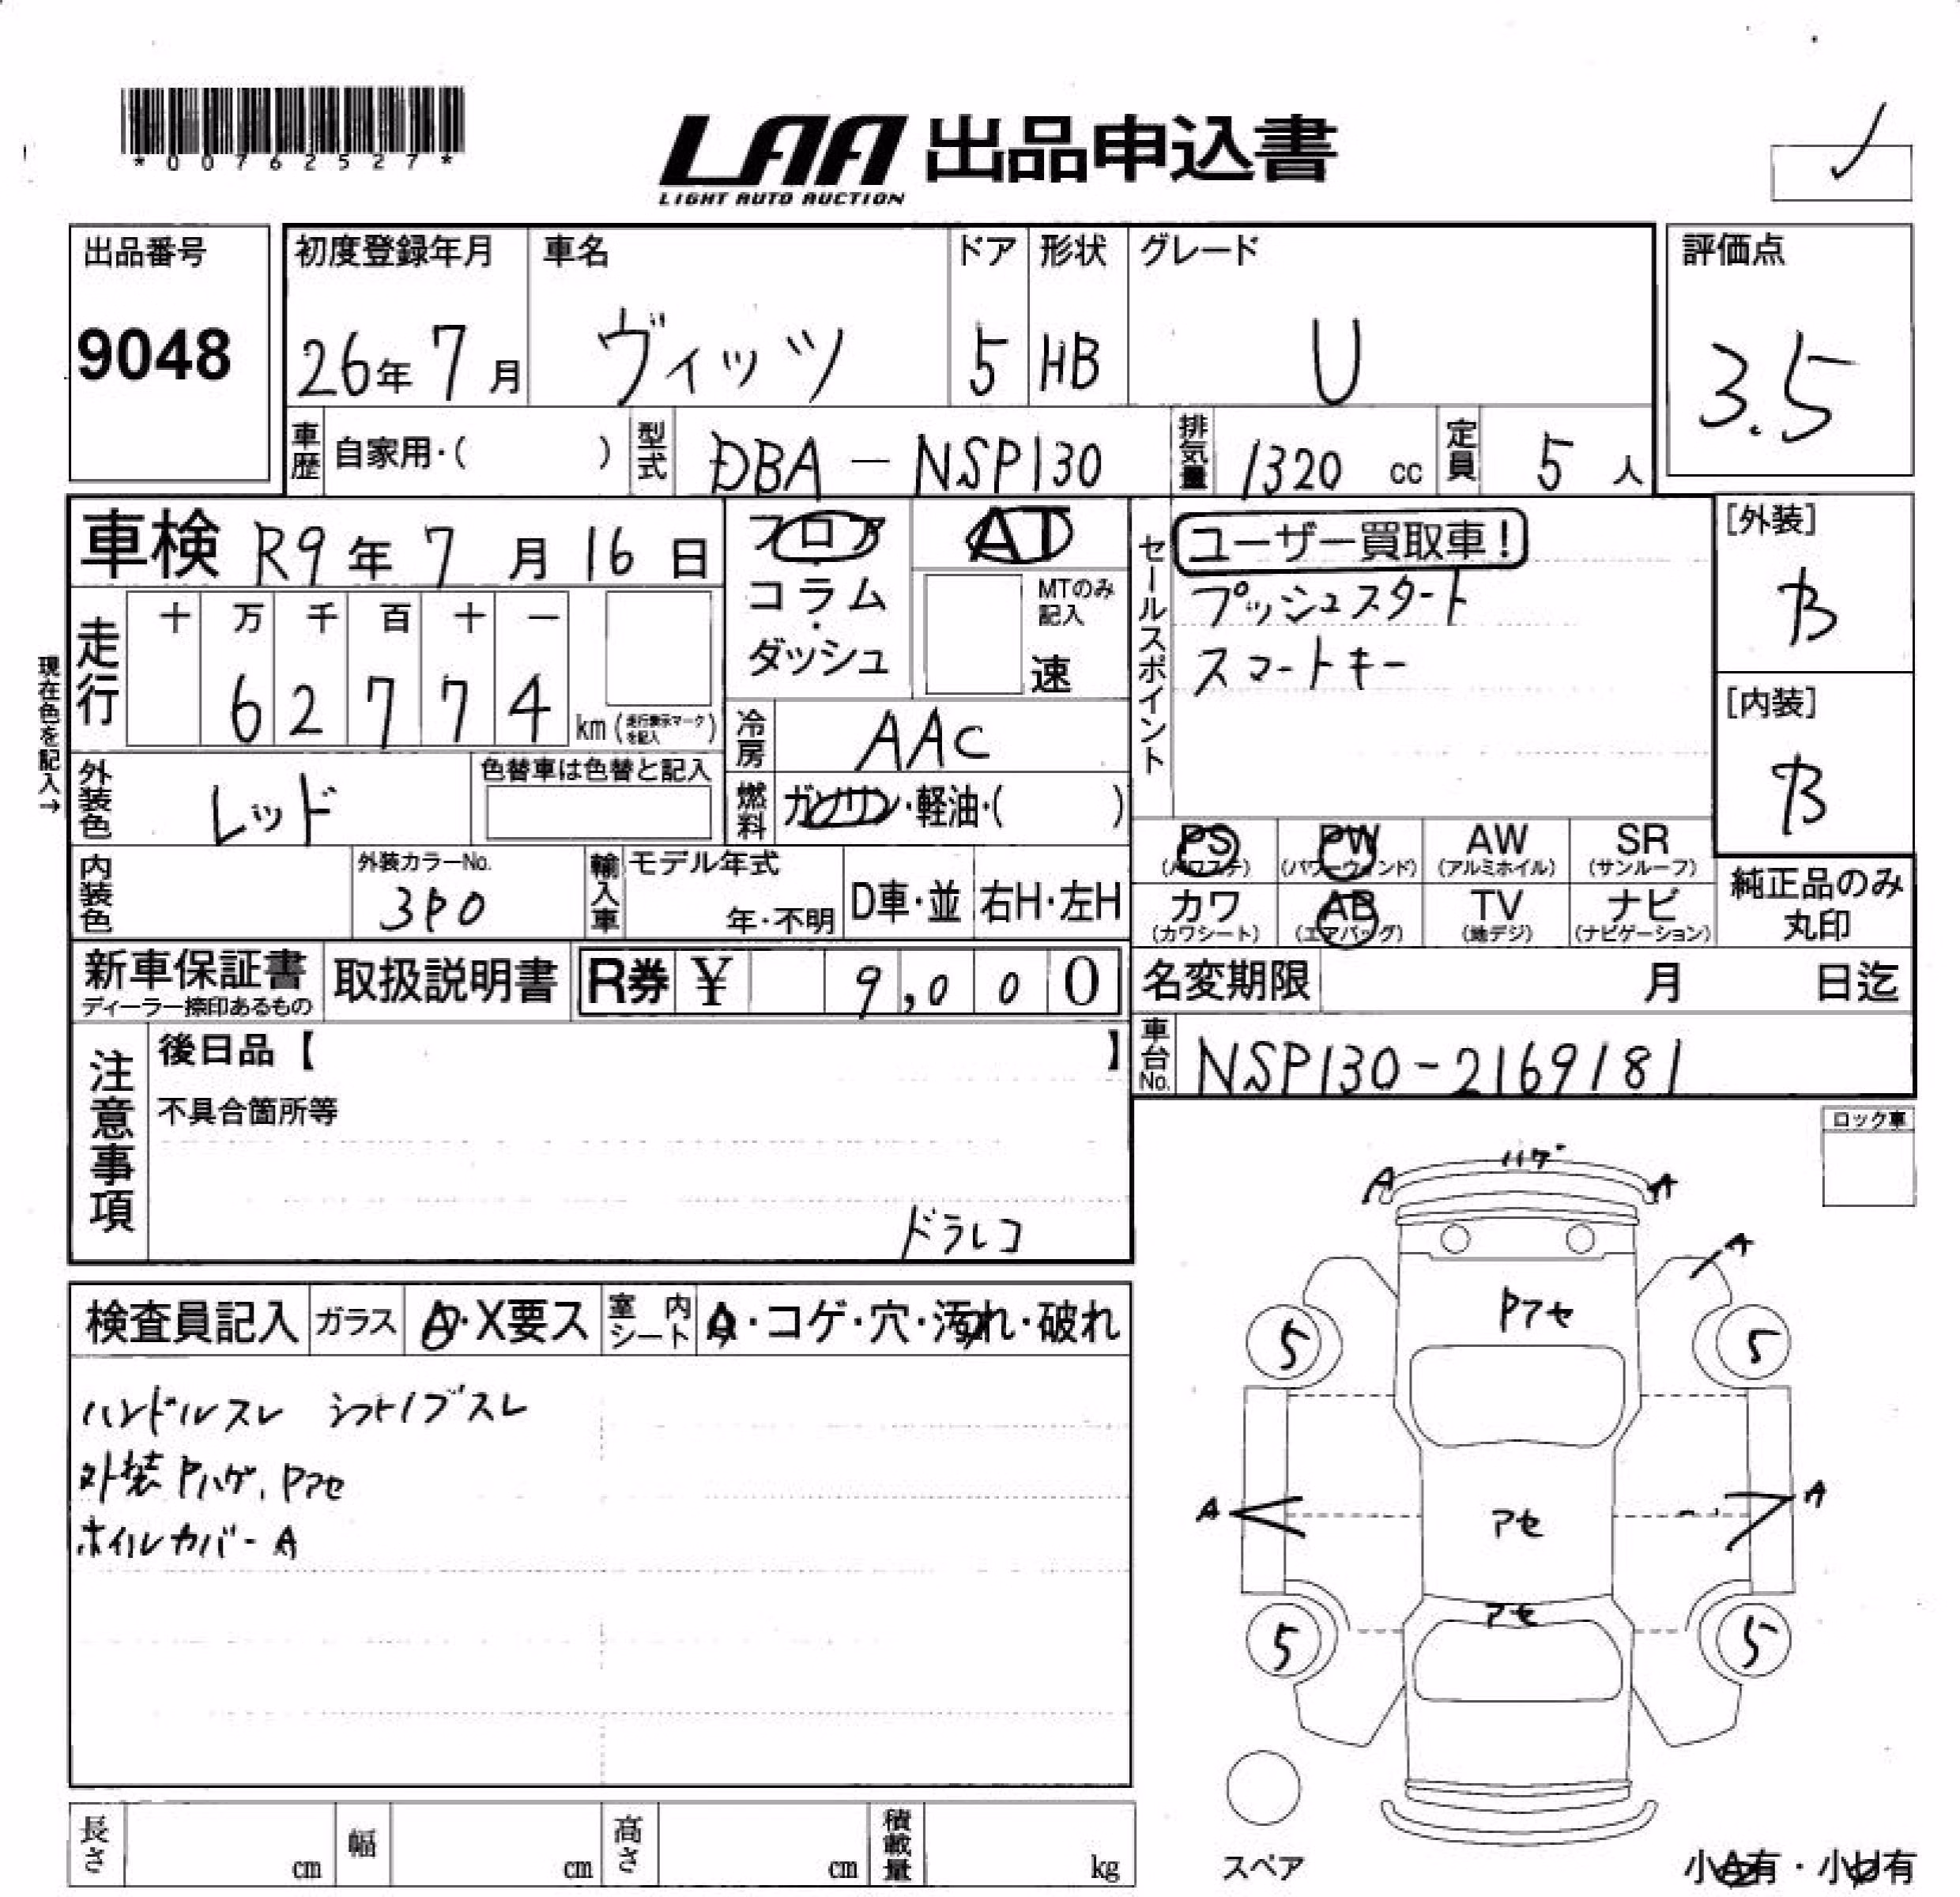 *00762527*
LAA 出品申込書
LIGHT AUTO AUCTION
出品番号
9048
初度登録年月
26年7月
車名
ヴィッツ
ドア
5
形状
HB
グレード
U
評価点
3.5
車歴 自家用・( )
型式 DBA-NSP130
排気量 1320 cc
定員 5 人
車検 R9年7月16日
現在色を記入→
走行
十 万 千 百 十 一
6 2 7 7 4 km (走行表示マークを記入)
フロア・コラム・ダッシュ
AT
MTのみ記入
速
冷房 AAC
燃料 ガソリン・軽油・( )
外装色 レッド
色替車は色替と記入
内装色
外装カラーNo.
3P0
輸入車 モデル年式
年・不明
D車・並 右H・左H
セールスポイント
ユーザー買取車!
プッシュスタート
スマートキー
[外装]
B
[内装]
B
PS (パワステ)
PW (パワーウィンド)
AW (アルミホイル)
SR (サンルーフ)
カワ (カワシート)
AB (エアバッグ)
TV (地デジ)
ナビ (ナビゲーション)
純正品のみ丸印
新車保証書
ディーラー捺印あるもの
取扱説明書
R券 ¥ 9,000
名変期限 月 日迄
車台No. NSP130-2169181
注意事項
後日品【 】
不具合箇所等
ドラレコ
ロック車
検査員記入
ガラス A・X要ス
室内シート A・コゲ・穴・汚れ・破れ
ハンドルスレ シフトノブスレ
外装Pハゲ、Pアセ
ホイルカバーA
ハゲ
A
A
A
Pアセ
5
5
A
アセ
A
アセ
5
5
スペア
小A有・小U有
長さ cm
幅 cm
高さ cm
積載量 kg